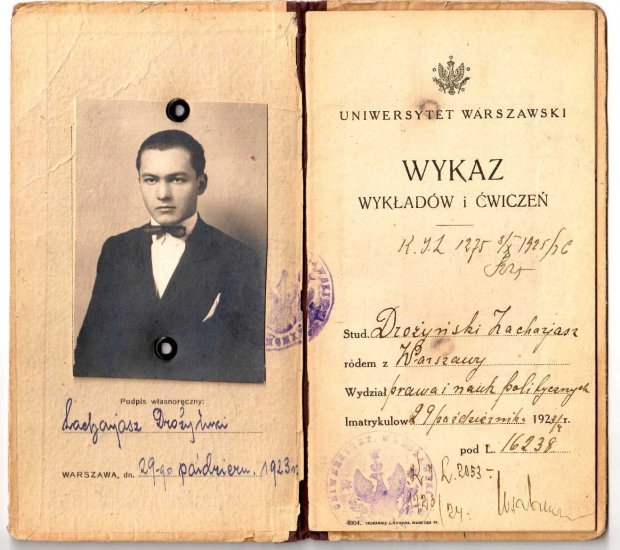 Podpis własnoręczny:
Zacharjasz Drożyński
WARSZAWA, dn. 29-go paździer. 1923 r.
UNIWERSYTET WARSZAWSKI
WYKAZ
WYKŁADÓW i ĆWICZEŃ
1275 1925
Stud. Drożyński Zacharjasz
rodem z Warszawy
Wydział prawa i nauk politycznych
Imatrykulow. 29 październik 1923/r.
pod L. 16238
L. 2053 -
1923/24.
4904.